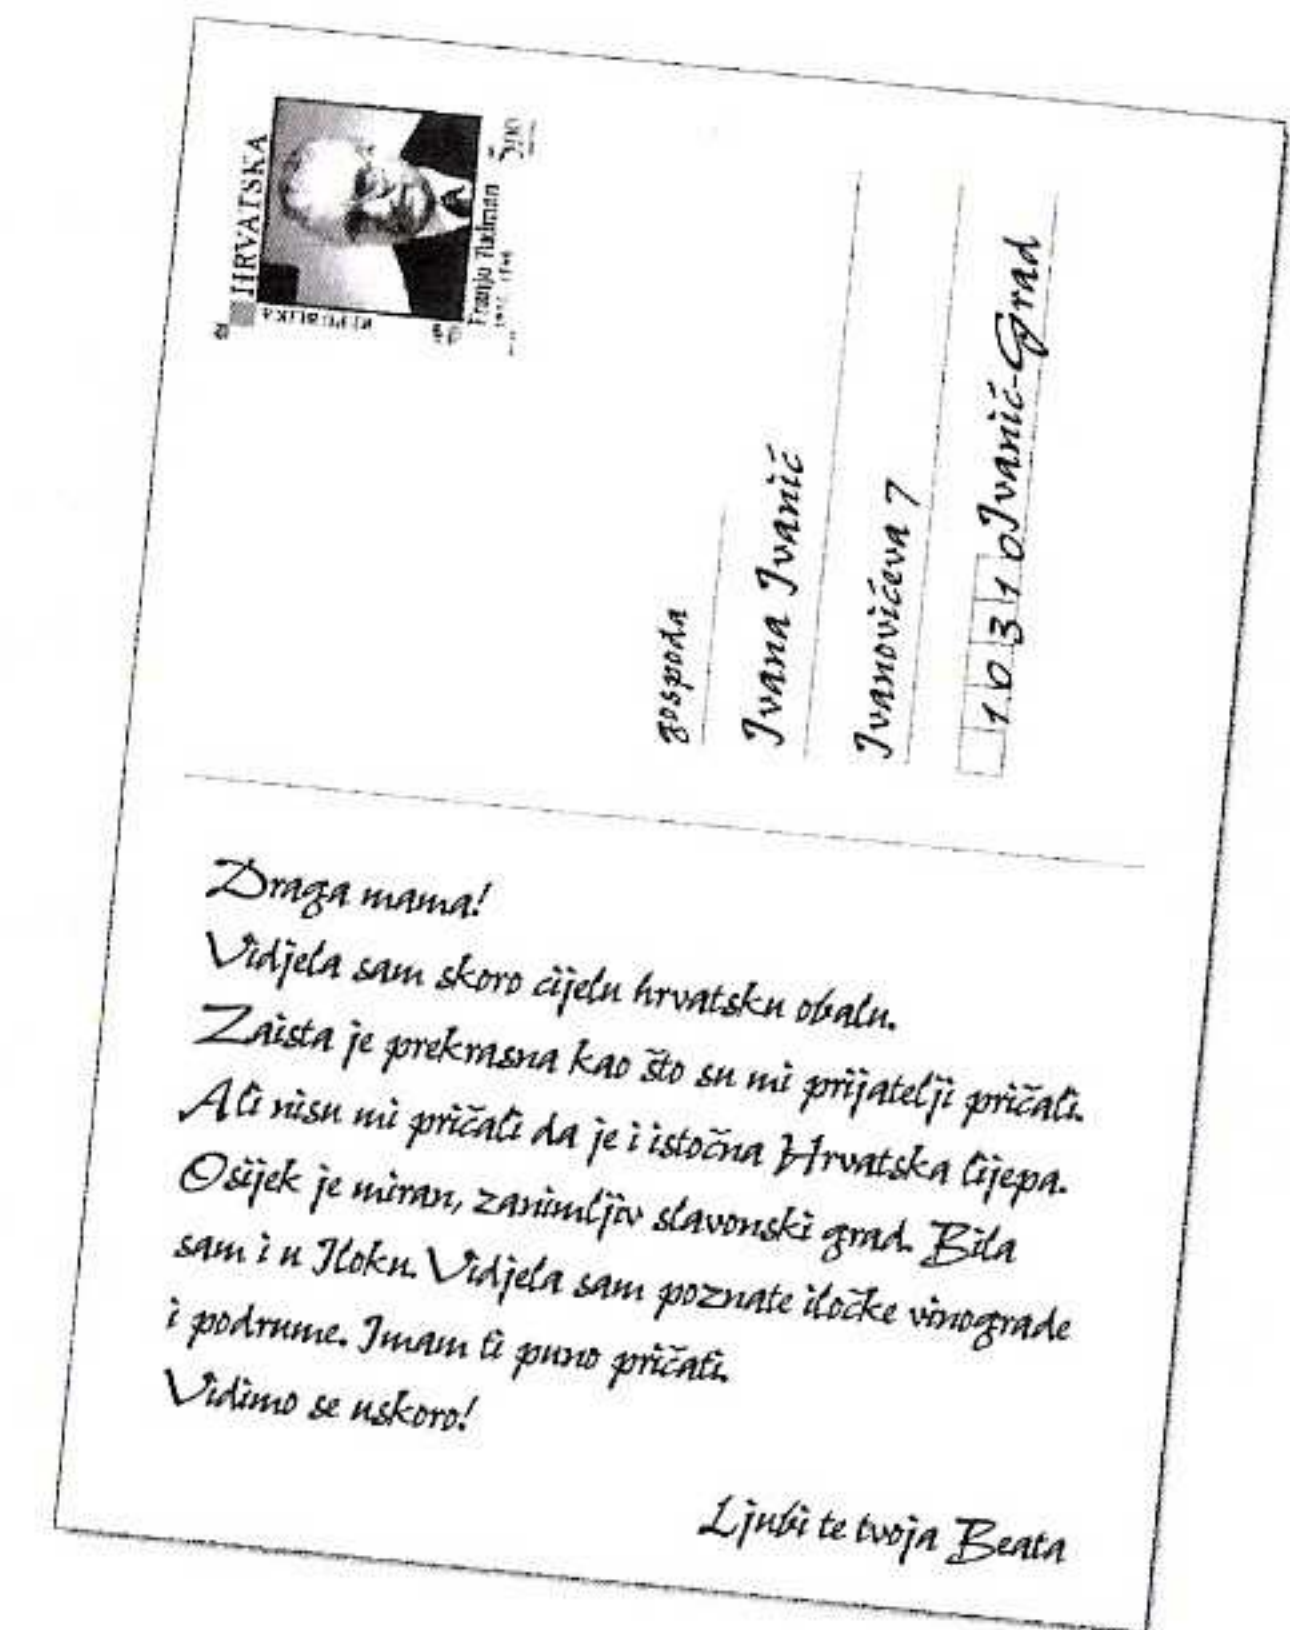 REPUBLIKA
HRVATSKA
Franjo Tuđman
gospođa
Ivana Ivanić
Ivanovićeva 7
10310 Ivanić-Grad
Draga mama!
Vidjela sam skoro cijelu hrvatsku obalu.
Zaista je prekrasna kao što su mi prijatelji pričali.
Ali nisu mi pričali da je i istočna Hrvatska lijepa.
Osijek je miran, zanimljiv slavonski grad. Bila
sam i u Iloku. Vidjela sam poznate iločke vinograde
i podrume. Imam ti puno pričati.
Vidimo se uskoro!
Ljubi te tvoja Beata